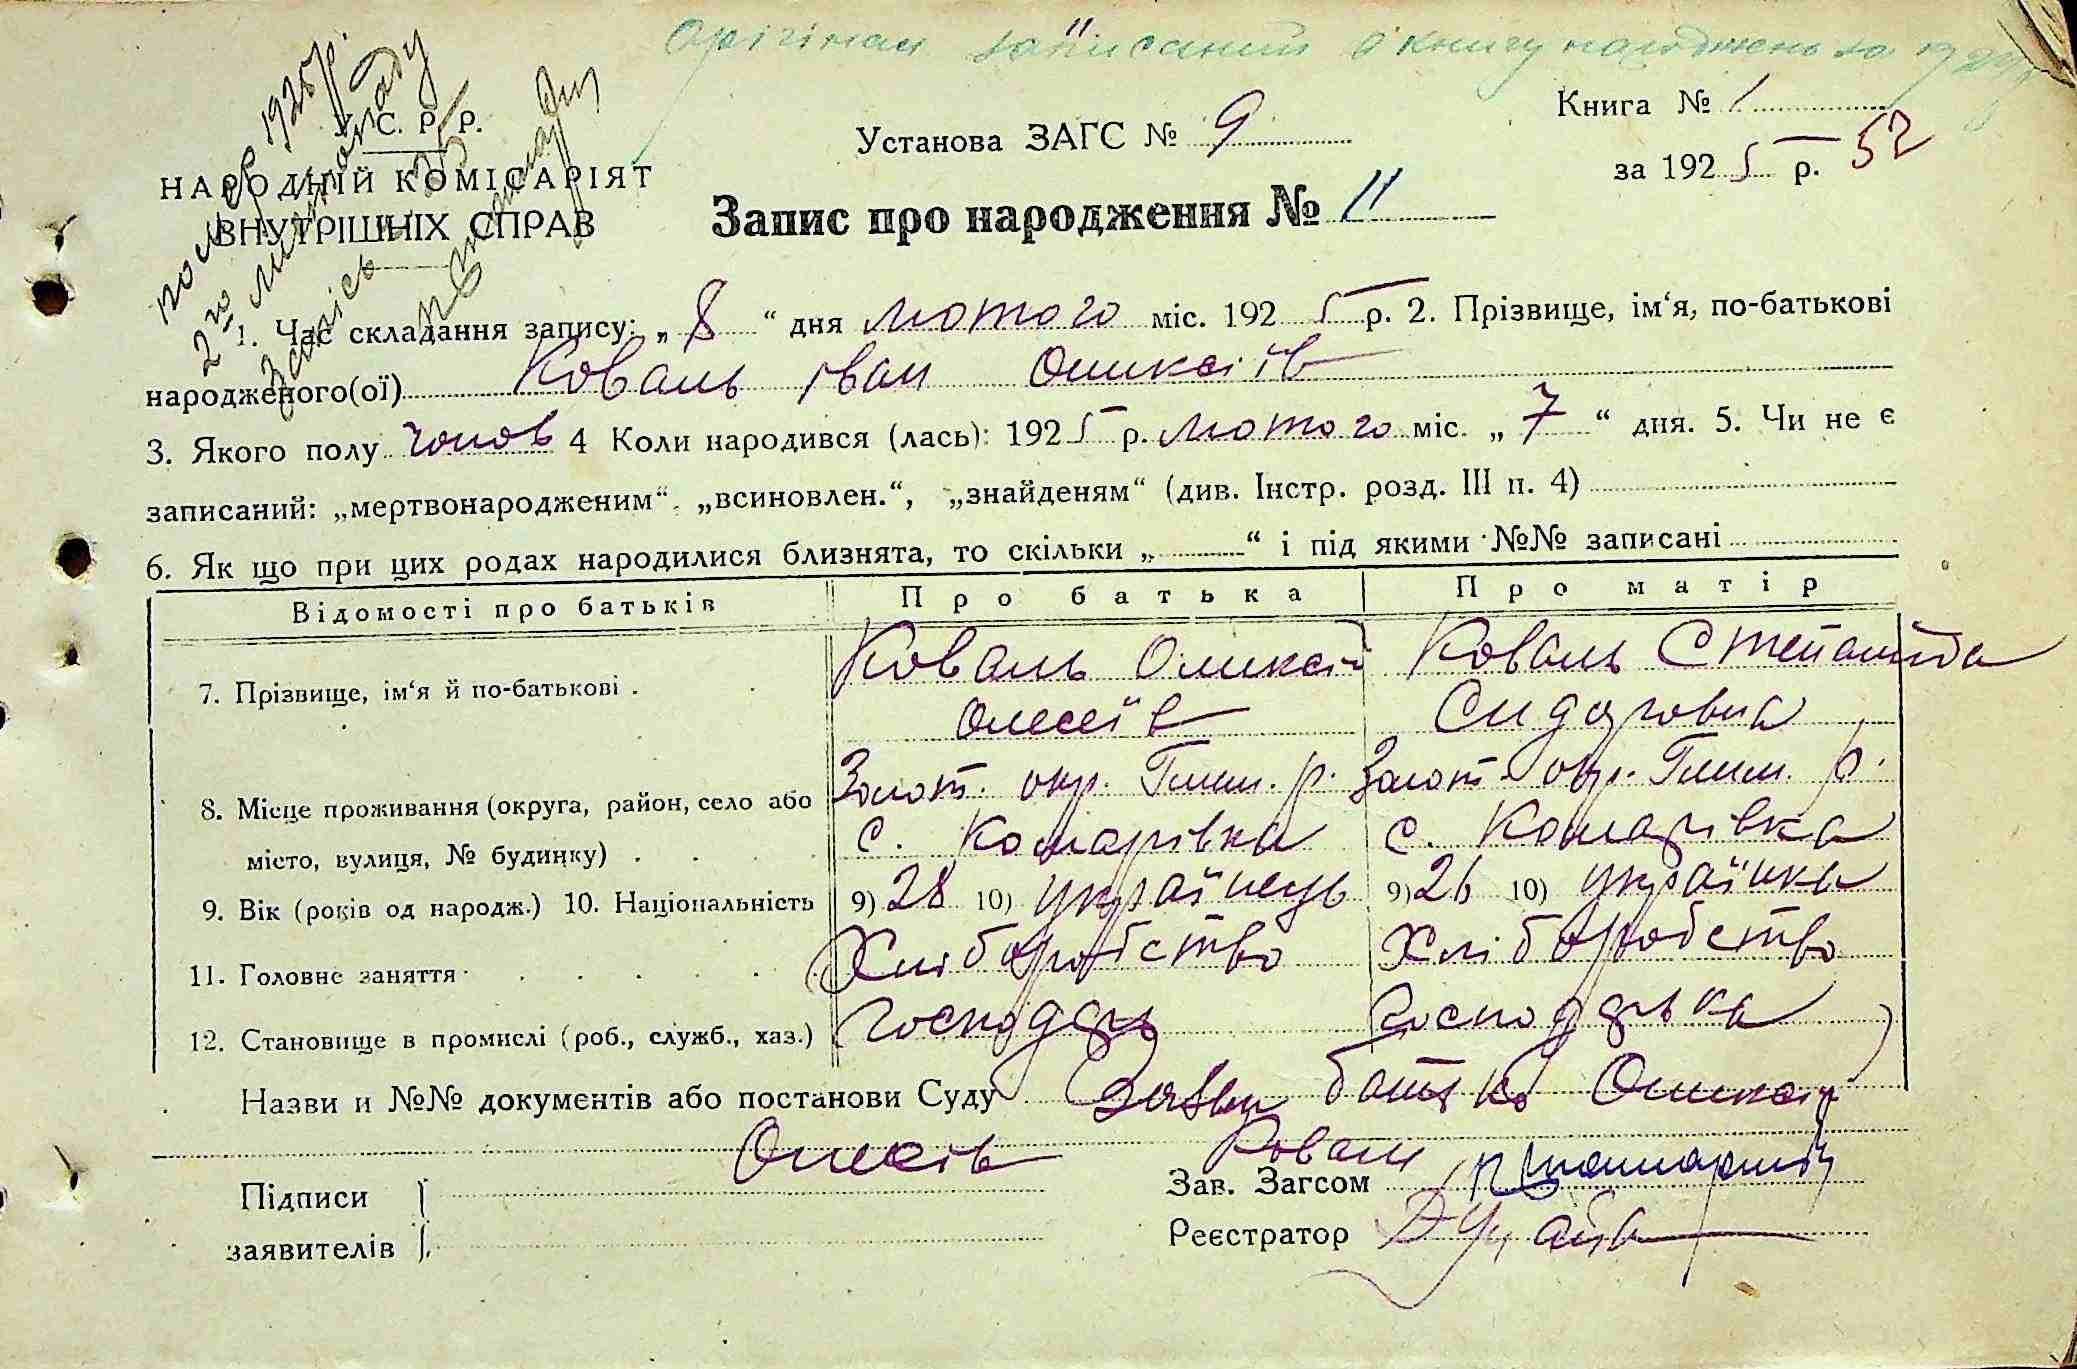 Орігінал записаний в книгу народжень за
помер 1925 р.
2го листопаду
Запись
У. С. Р. Р.
НАРОДНІЙ КОМІСАРІЯТ
ВНУТРІШНІХ СПРАВ
Установа ЗАГС № 9
Книга № 1
за 1925 р. 52
Запис про народження № 11
1. Час складання запису: „ 8 “ дня лютого міс. 1925 р. 2. Прізвище, ім‘я, по-батькові
народженого(ої) Коваль Іван Оликсіїв
3. Якого полу чолов 4 Коли народився (лась): 1925 р. лютого міс. „ 7 “ дня. 5. Чи не є
записаний: „мертвонародженим“, „всиновлен.“, „знайденям“ (див. Інстр. розд. III п. 4)
6. Як що при цих родах народилися близнята, то скільки „ “ і під якими №№ записані
Відомості про батьків Про батька Про матір
7. Прізвище, ім‘я й по-батькові . Коваль Оликсій Коваль Степанида
Олесіїв Сидоровна
8. Місце проживання (округа, район, село або Золот. окр. Глим. р. Золот. окр. Глим. р.
місто, вулиця, № будинку) . с. Комарівка с. Комарівка
9. Вік (років од народж.) 10. Національність 9) 28 10) українець 9) 26 10) українка
11. Головне заняття Хліборобство Хліборобство
12. Становище в промислі (роб., служб., хаз.) Господарь Господарька
Назви и №№ документів або постанови Суду Заяви батько Оликсій
Олесіїв Коваль
Підписи
заявителів
Зав. Загсом
Реєстратор